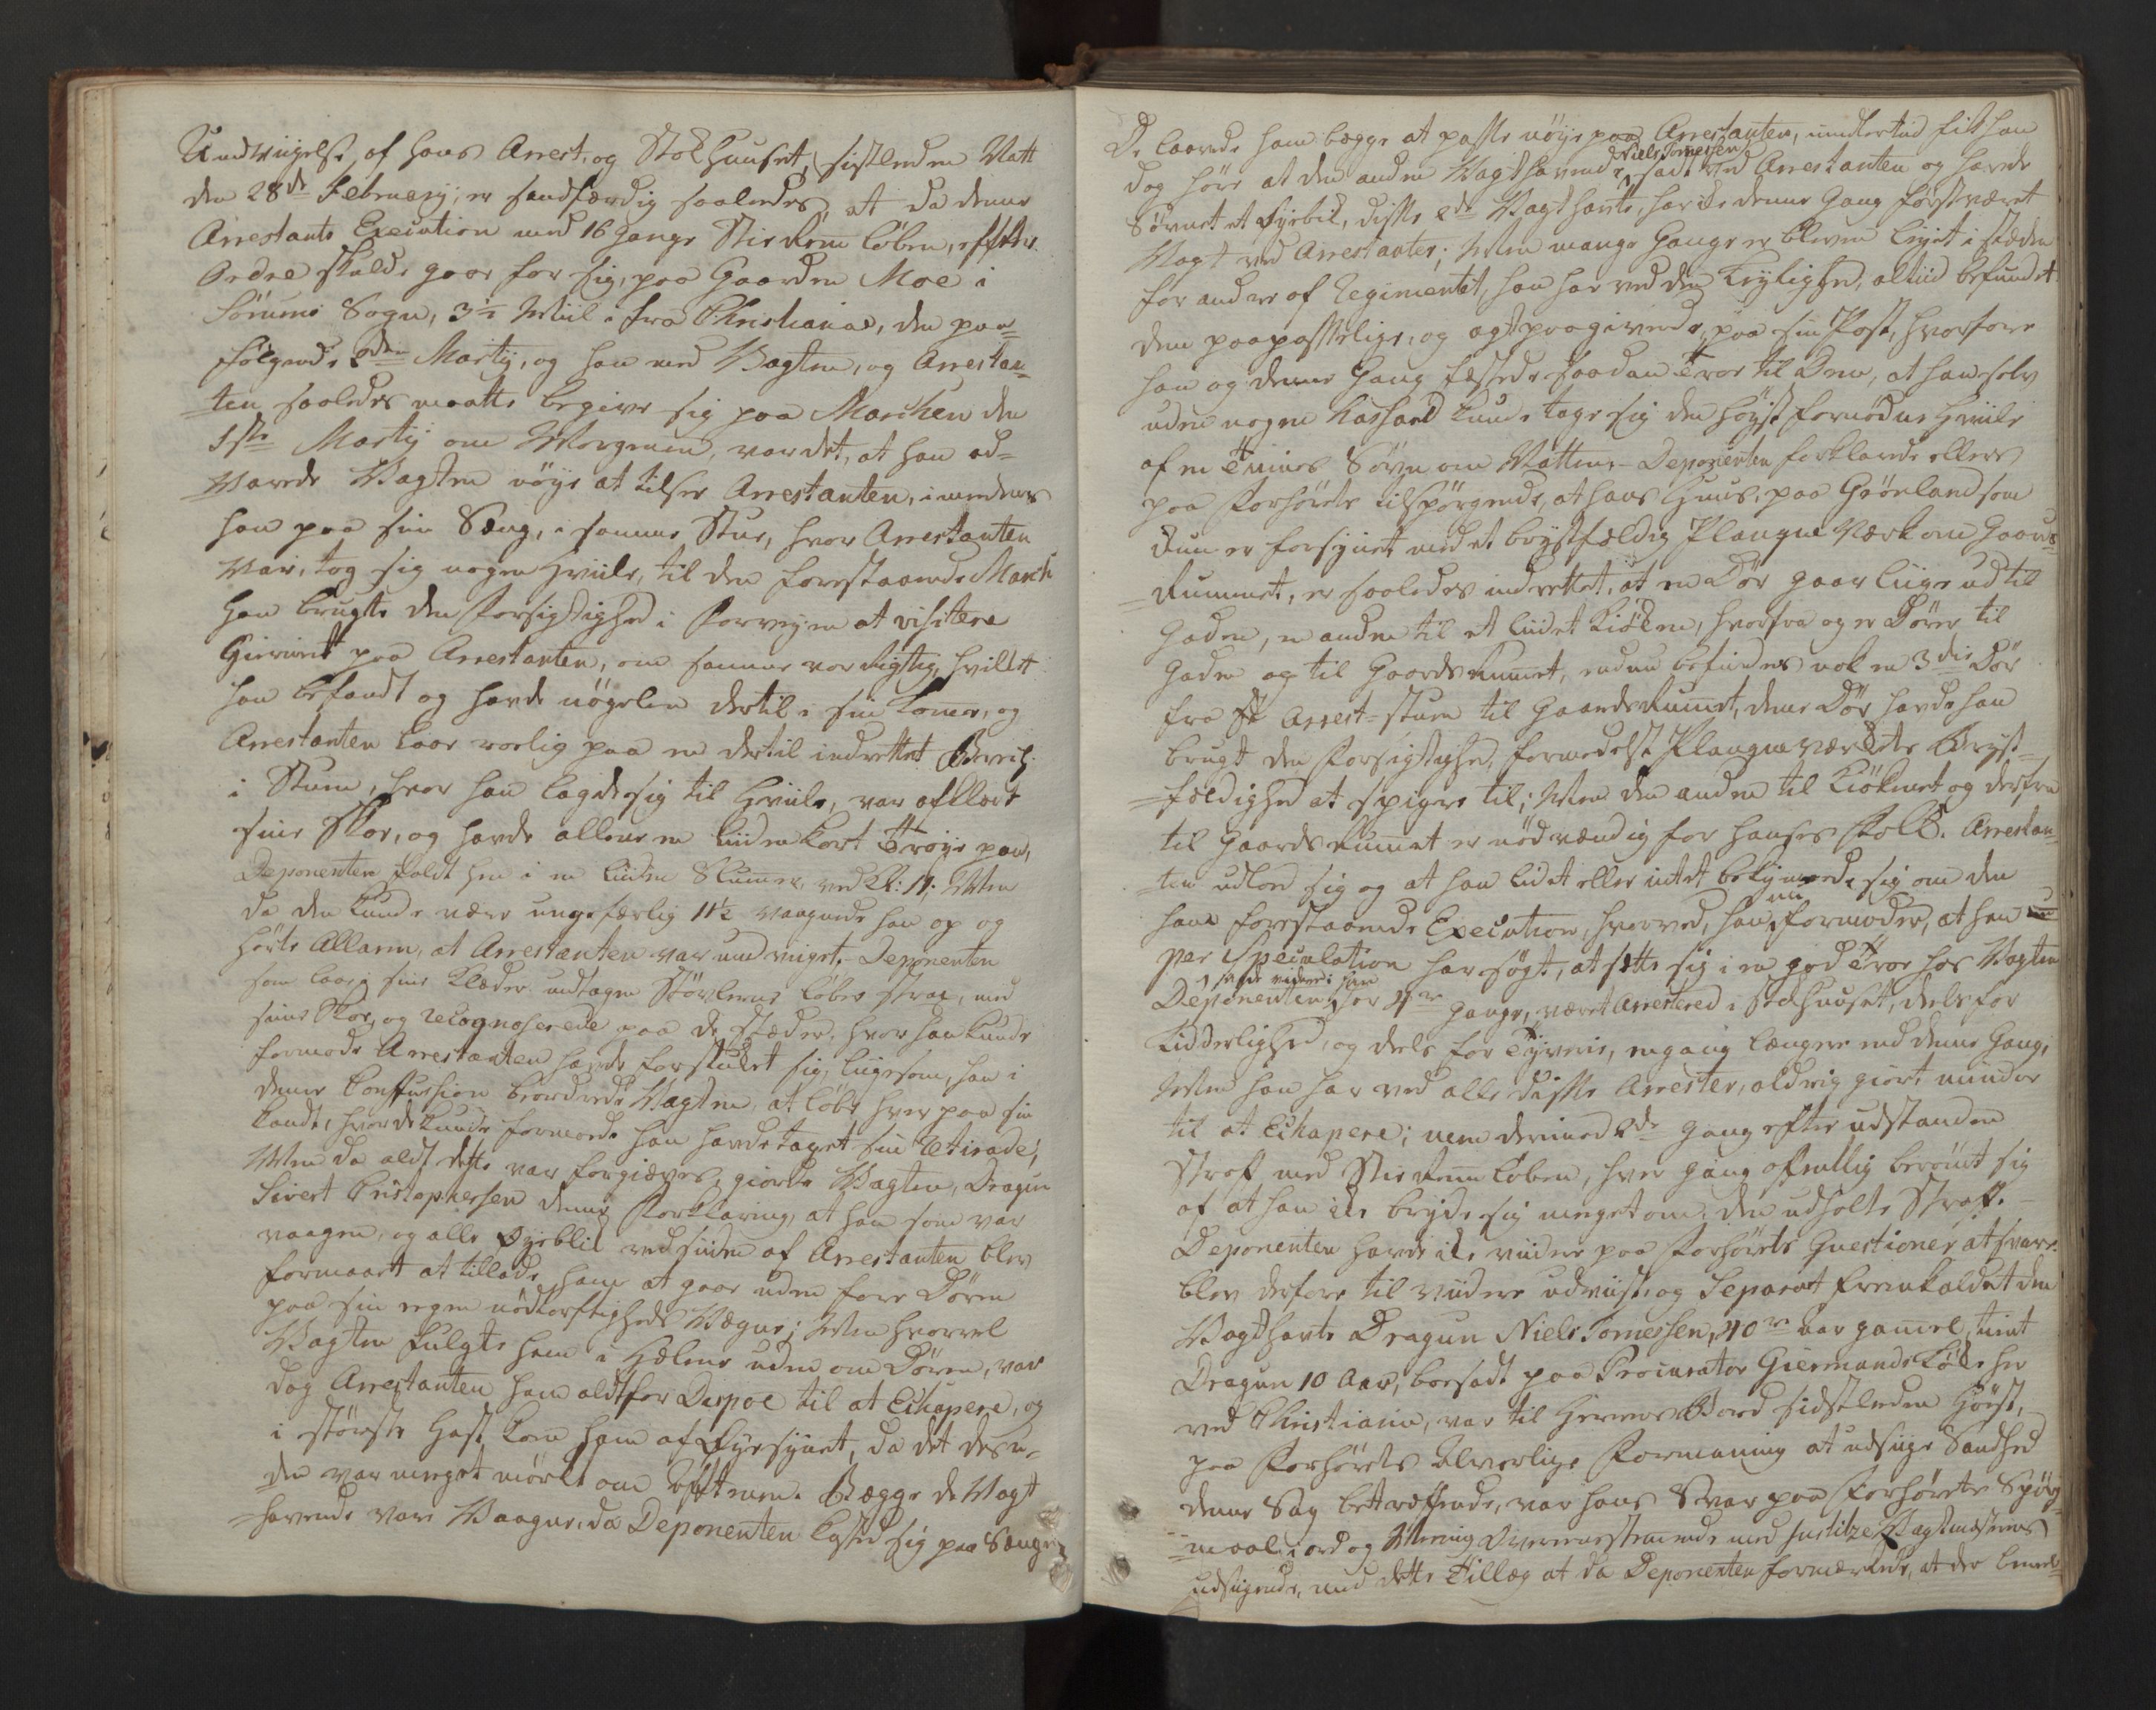 Undvigelse af hans Arrest, og Stokhuuset, sistleden Natt
den 28de February, er sandfærdig saaledes, at da denne
Arrestants Execution med 16 gange Stiv Rem löben, effter
Ordre skulde gaae for sig, paa Gaarden Moe i
Sörums Sogn, 3½ Miil fra Christiania, den paa=
fölgende 2den Martij, og han med Vagten, og Arrestan=
=ten saaledes maatte begive sig paa Marchen den
1ste Martij om Morgenen, var det, at han ad=
=varede Vagten nöye at tilsee Arrestanten, imedens
han paa sin Sæng, i samme Stue, hvor Arrestanten
var, tog sig nogen Hviile, til den forestaaende March
han brugte den Forsigtighed i Forvejen at visitere
Gieviret paa Arrestanten, om samme var Rigtig, hvilket
han befandt og havde nögelen dertil i sin Lomme, og
Arrestanten laae roelig paa en dertil indrettet
i Stuen, hvor han lagde sig til Hviile, var afklædt
sine Skoe, og havde allene en liiden kort Tröye paa,
Deponenten faldt hen i en liiden Slummer, ved Kl: 11; Men
da den kunde være ungefærlig 11½ vaagnede han op og
hörte Allarm, at Arrestanten var undviiget. Deponenten
som laae i sine Klæder undtagen Stövlerne löber strax, med
sine Skoe, og recognoscerede paa de stæder, hvor han kunde
formode Arrestanten havde forstukket sig, liigesom, han i
denne Confussion beordrede Vagten, at löbe hver paa sin
kandt, hvor de kunde formode han havde taget sin Retirade;
Men da aldt dette var forgiæves, giorde Vagten, Dragun
Sivert Cristophersen denne Forklaring, at han som var
vaagen, og alle Öyeblik ved siiden af Arrestanten blev
formaaet at tillade ham at gaae uden fore Dören
paa sin egen nödtörftigheds Vægne; Men hvorvel
Vagten fulgte ham i Hælene uden om Dören, var
dog Arrestanten ham aldtfor Dispoe til at Echapere, og
i störste Hast kom ham af Öyesynet, da det desu=
den var meget mörkt om Afftenen. Begge de Vagt
=havende vare Vaagne, da Deponenten kasted sig paa Sængen
De lovede ham begge at passe nöye paa Arrestanten, imidlertid fik han
dog höre at den anden Vagthavende Niels Tomessen sadt ved Arrestanten og havde
Sövnet et Öyeblik, disse 2de Vagthavte, har ikke denne Gang först været
Vagt ved Arrestanter; Men mange Gange er bleven leyet i stæden
for andre af Regimentet, han har ved den Leylighed, altiid befundet
dem paapasselige, og agtpaagivende, paa sin Post, hvorfore
han og denne Gang fæstede saadan Troe til Dem, at han selv
uden nogen Hassard kunde tage sig den höyst fornödne Hviile
af en Times Sövn om Natten. Deponenten forklarede ellers
paa Forhörets tilspörgende, at hans Huus, paa Grönland som
kun er forsynet med et bröstfældig Planque Værk om Gaards=
=Rummet, er saaledes indrettet, at en Dör gaar liige ud til
Gaden, en anden til et liidet Kiöken, hvorfra og er Dörer til
Gaden og til Gaards Rummet, endnu befindes nok en 3die Dör
fra Arrest=stuen til Gaards Rummet, denne Dör havde han
brugt den Forsigtighed, formedelst Planqueværkets Bröst=
=fældighed at spigre til; Men den anden til Kiökenet og derfra
til Gaards Rummet er nödvændig for Husets Folk. Arrestan=
=ten udlod sig og at han lidet eller intet bekymrede sig om den
ham forestaaende Execution, hvorved, han nu formoder, at han
per Speculation har sögt, at sette sig i en god Troe hos Vagten
Deponenten har 4re gange, været Arrestered i Stokhuuset, deels for
Lidderlighed, og deels for Tyverie, engang længere end denne Gang,
Men han har ved alle disse Arrester, aldrig giort minder
til at Echapere; men derimod 2de gang efter udstanden
Straf med Stiv Rem löben, hver gang offentlig berömt sig
af at han ikke bryde sig meget om den udholte Straf.
Deponenten havde ikke viidere paa Forhörets Questioner at svare
blev derfore til viidere udviist og Separat fremkaldet den
Vagthavte Dragun Niels Tomessen, 40re aar gammel, tient
Dragun 10 Aar, boesadt paa Procurator Giermands Lökke her
ved Christiania, var til Herrens Bord sidstleden Höst,
paa Forhörets Alvorlige Formaning at udsiige Sandhed
denne Sag bettræffende, var hans Svar paa Forhörets Spörg=
=maal, i ord og Mening Overeenstemmende med Justitz Vagtmesterens
udsigende, med dette Tillæg at da Deponenten formærkede, at der